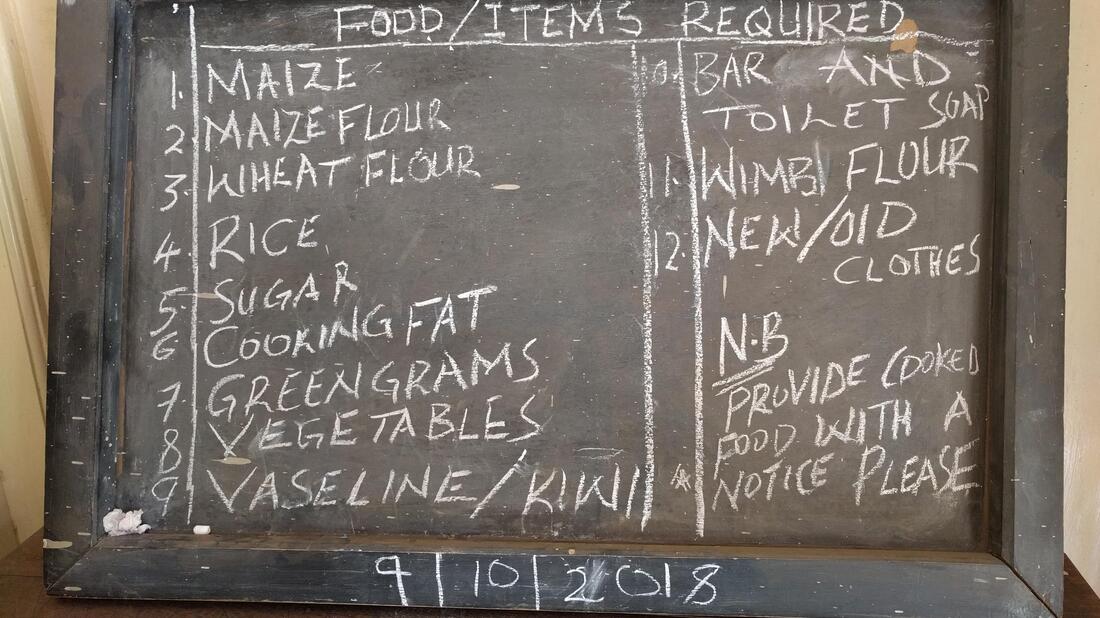 FOOD/ITEMS REQUIRED
1. MAIZE
2 MAIZE FLOUR
3. WHEAT FLOUR
4 RICE
5. SUGAR
6 COOKING FAT
7 GREEN GRAMS
8 VEGETABLES
9 VASELINE/KIWI
10. BAR AND
TOILET SOAP
11. WIMBI FLOUR
12. NEW/OLD
CLOTHES
N.B
PROVIDE COOKED
FOOD WITH A
* NOTICE PLEASE
9/10/2018